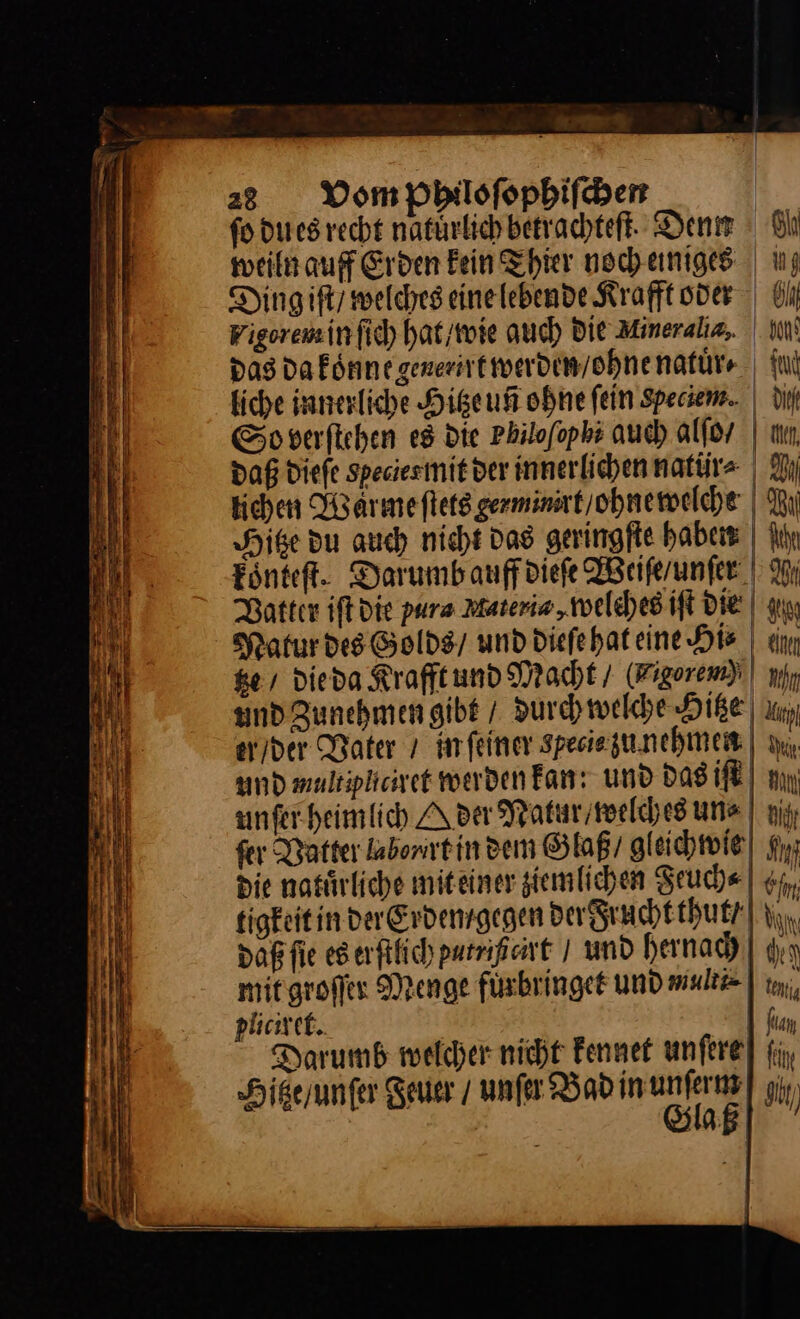 28 Vom Philoſophiſchen
ſo du es recht natürlich betrachteſt. Denn
weiln auff Erden kein Thier noch einiges
Ding iſt / welches eine lebende Krafft oder
Vigorem in ſich hat / wie auch die Mineralia,
das da könne generirt werden / ohne natür⸗
liche innerliche Hitze uñ ohne ſein Speciem.
So verſtehen es die Philoſophi auch alſo /
daß dieſe Species mit der innerlichen natür⸗
lichen Wärme ſtets germinirt / ohne welche
Hitze du auch nicht das geringſte haben
könteſt. Darumb auff dieſe Weiſe / unſer
Vatter iſt die pura Materia, welches iſt die
Natur des Golds / und dieſe hat eine Hi⸗
tze / die da Krafft und Macht / (Vigorem)
und Zunehmen gibt / durch welche Hitze
er / der Vater / in ſeiner Specie zunehmen
und multipliciret werden kan: und das iſt
unſer heimlich 🜂 der Natur / welches un⸗
ſer Vatter laborirt in dem Glaß / gleich wie
die natürliche mit einer ziemlichen Feuch⸗
tigkeit in der Erden / gegen der Frucht thut /
daß ſie es erſtlich putrificirt / und hernach
mit groſſer Menge fürbringet und multi⸗
pliciret.
Darumb welcher nicht kennet unſere
Hitze / unſer Feuer / unſer Bad in unſerm
Glaß